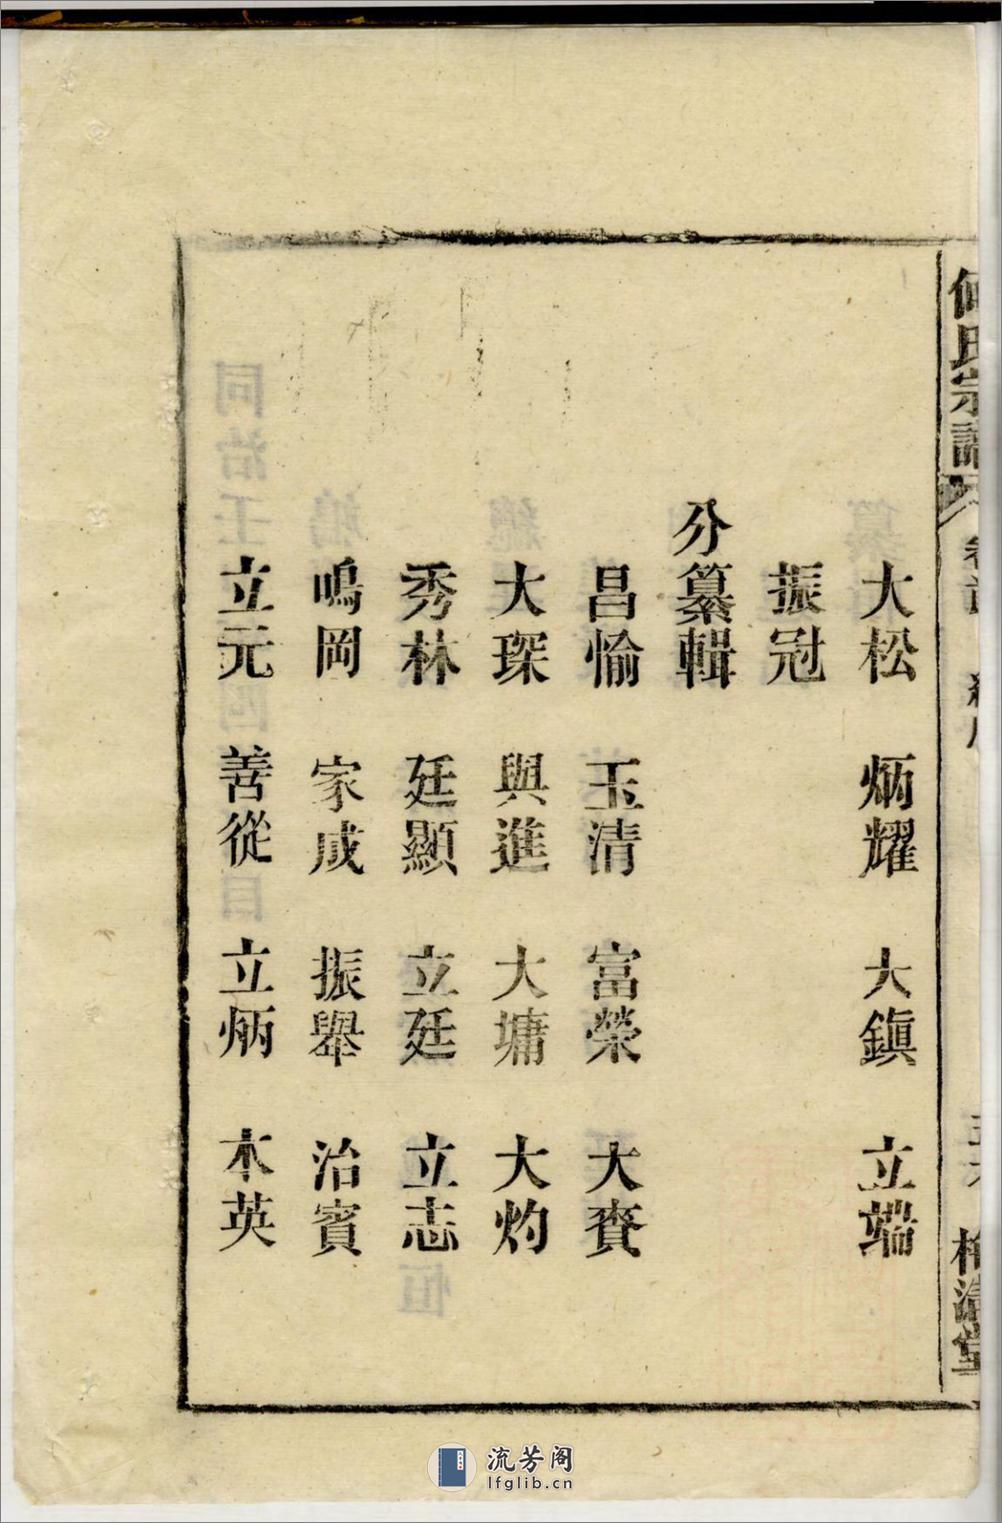 何氏宗譜
大松 炳耀 大鎮 立端
振冠
分纂輯
昌愉 玉清 富榮 大賚
大琛 與進 大墉 大灼
秀林 廷顯 立廷 立志
鳴岡 家成 振舉 治賓
立元 善從 立炳 木英
流芳阁
lfglib.cn